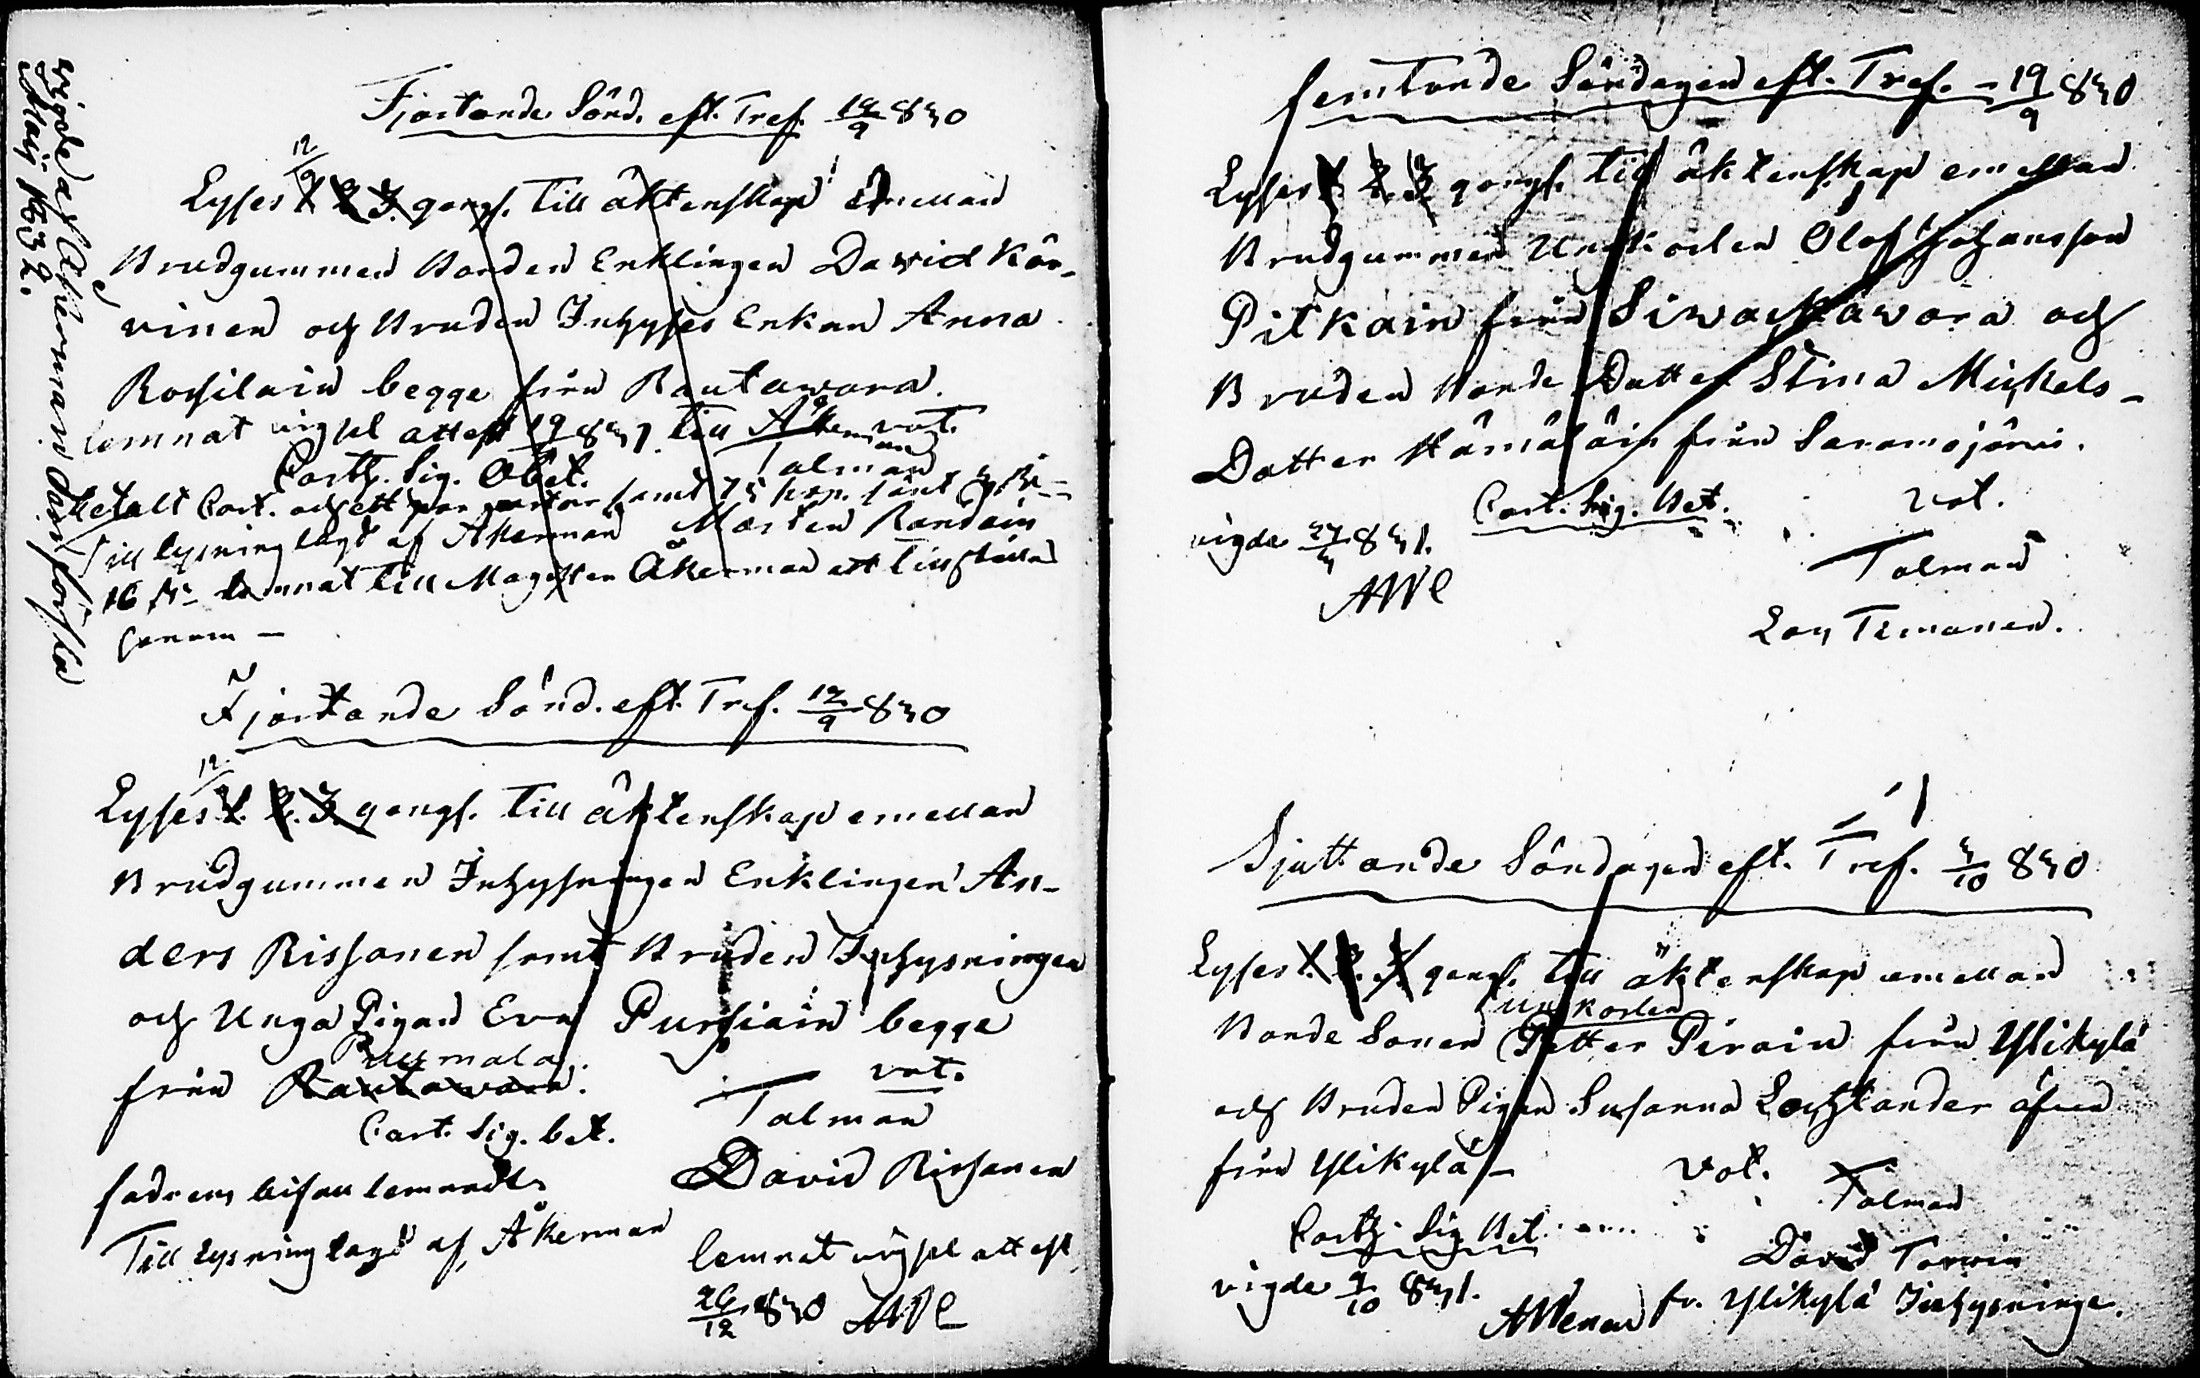 Fjortonde Sönd. eft. Tref. 12/9 830
12/9
Lyses 1. 2. 3. gångs. till äktenskap emellan
Brudgummen Bonden Enklingen David Kär-
vinen och Bruden Inhyses Enkan Anna
Rossilain begge från Rautawara.
lemnat vigsl attest 19/ 831 till Åkerman vot.
Cart. Sig. Obet. Talman
Betalt Cart. och ett par samt 75 kop. samt
Till lysning lagt af Åkerman Morten Randain
16 lemnat till Magister Åkerman att tillställa
honom –
vigde af Åkerman
Maij 1832.
Fjortonde Sönd. eft. Tref. 12/9 830
12/9
Lyses 1. 2. 3. gångs. till äktenskap emellan
Brudgummen Inhysningen Enklingen An-
ders Rissanen samt Bruden Inhysningen
och Unga Pigan Eva Pursiain begge
Puumala
från Rautawara.
Cart. Sig. bet. vot.
Talman
fadrens bifall lemnadt David Rissanen
Till lysning lagt af Åkerman
lemnat vigsl attest
26/12 830
femtonde Söndagen eft. Tref. – 19/9 830
Lyses 1. 2. 3. gångs. till äktenskap emellan
Brudgummen Ungkarlen Olof Johansson
Pitkäin från Siwackawara och
Bruden Bonde Dotter Stina Mickels-
Dotter Hämäläin från Saramojärvi.
Cart. Sig. Bet. vot.
vigde 27/3 831. Talman
Lars Timonen.
Sjuttonde Söndagen eft. Tref. 3/10 830
Lyses 1. 2. 3. gångs. till äktenskap emellan
Ungkarlen
Bonde Sonen Petter Pirain från Ylikylä
och Bruden Pigan Susanna Lochtander äfven
från Ylikylä – vot.
Talman
Cart. Sig. Bet.
David Torvin
vigde 9/10 831. fr. Ylikylä Inhysninge.